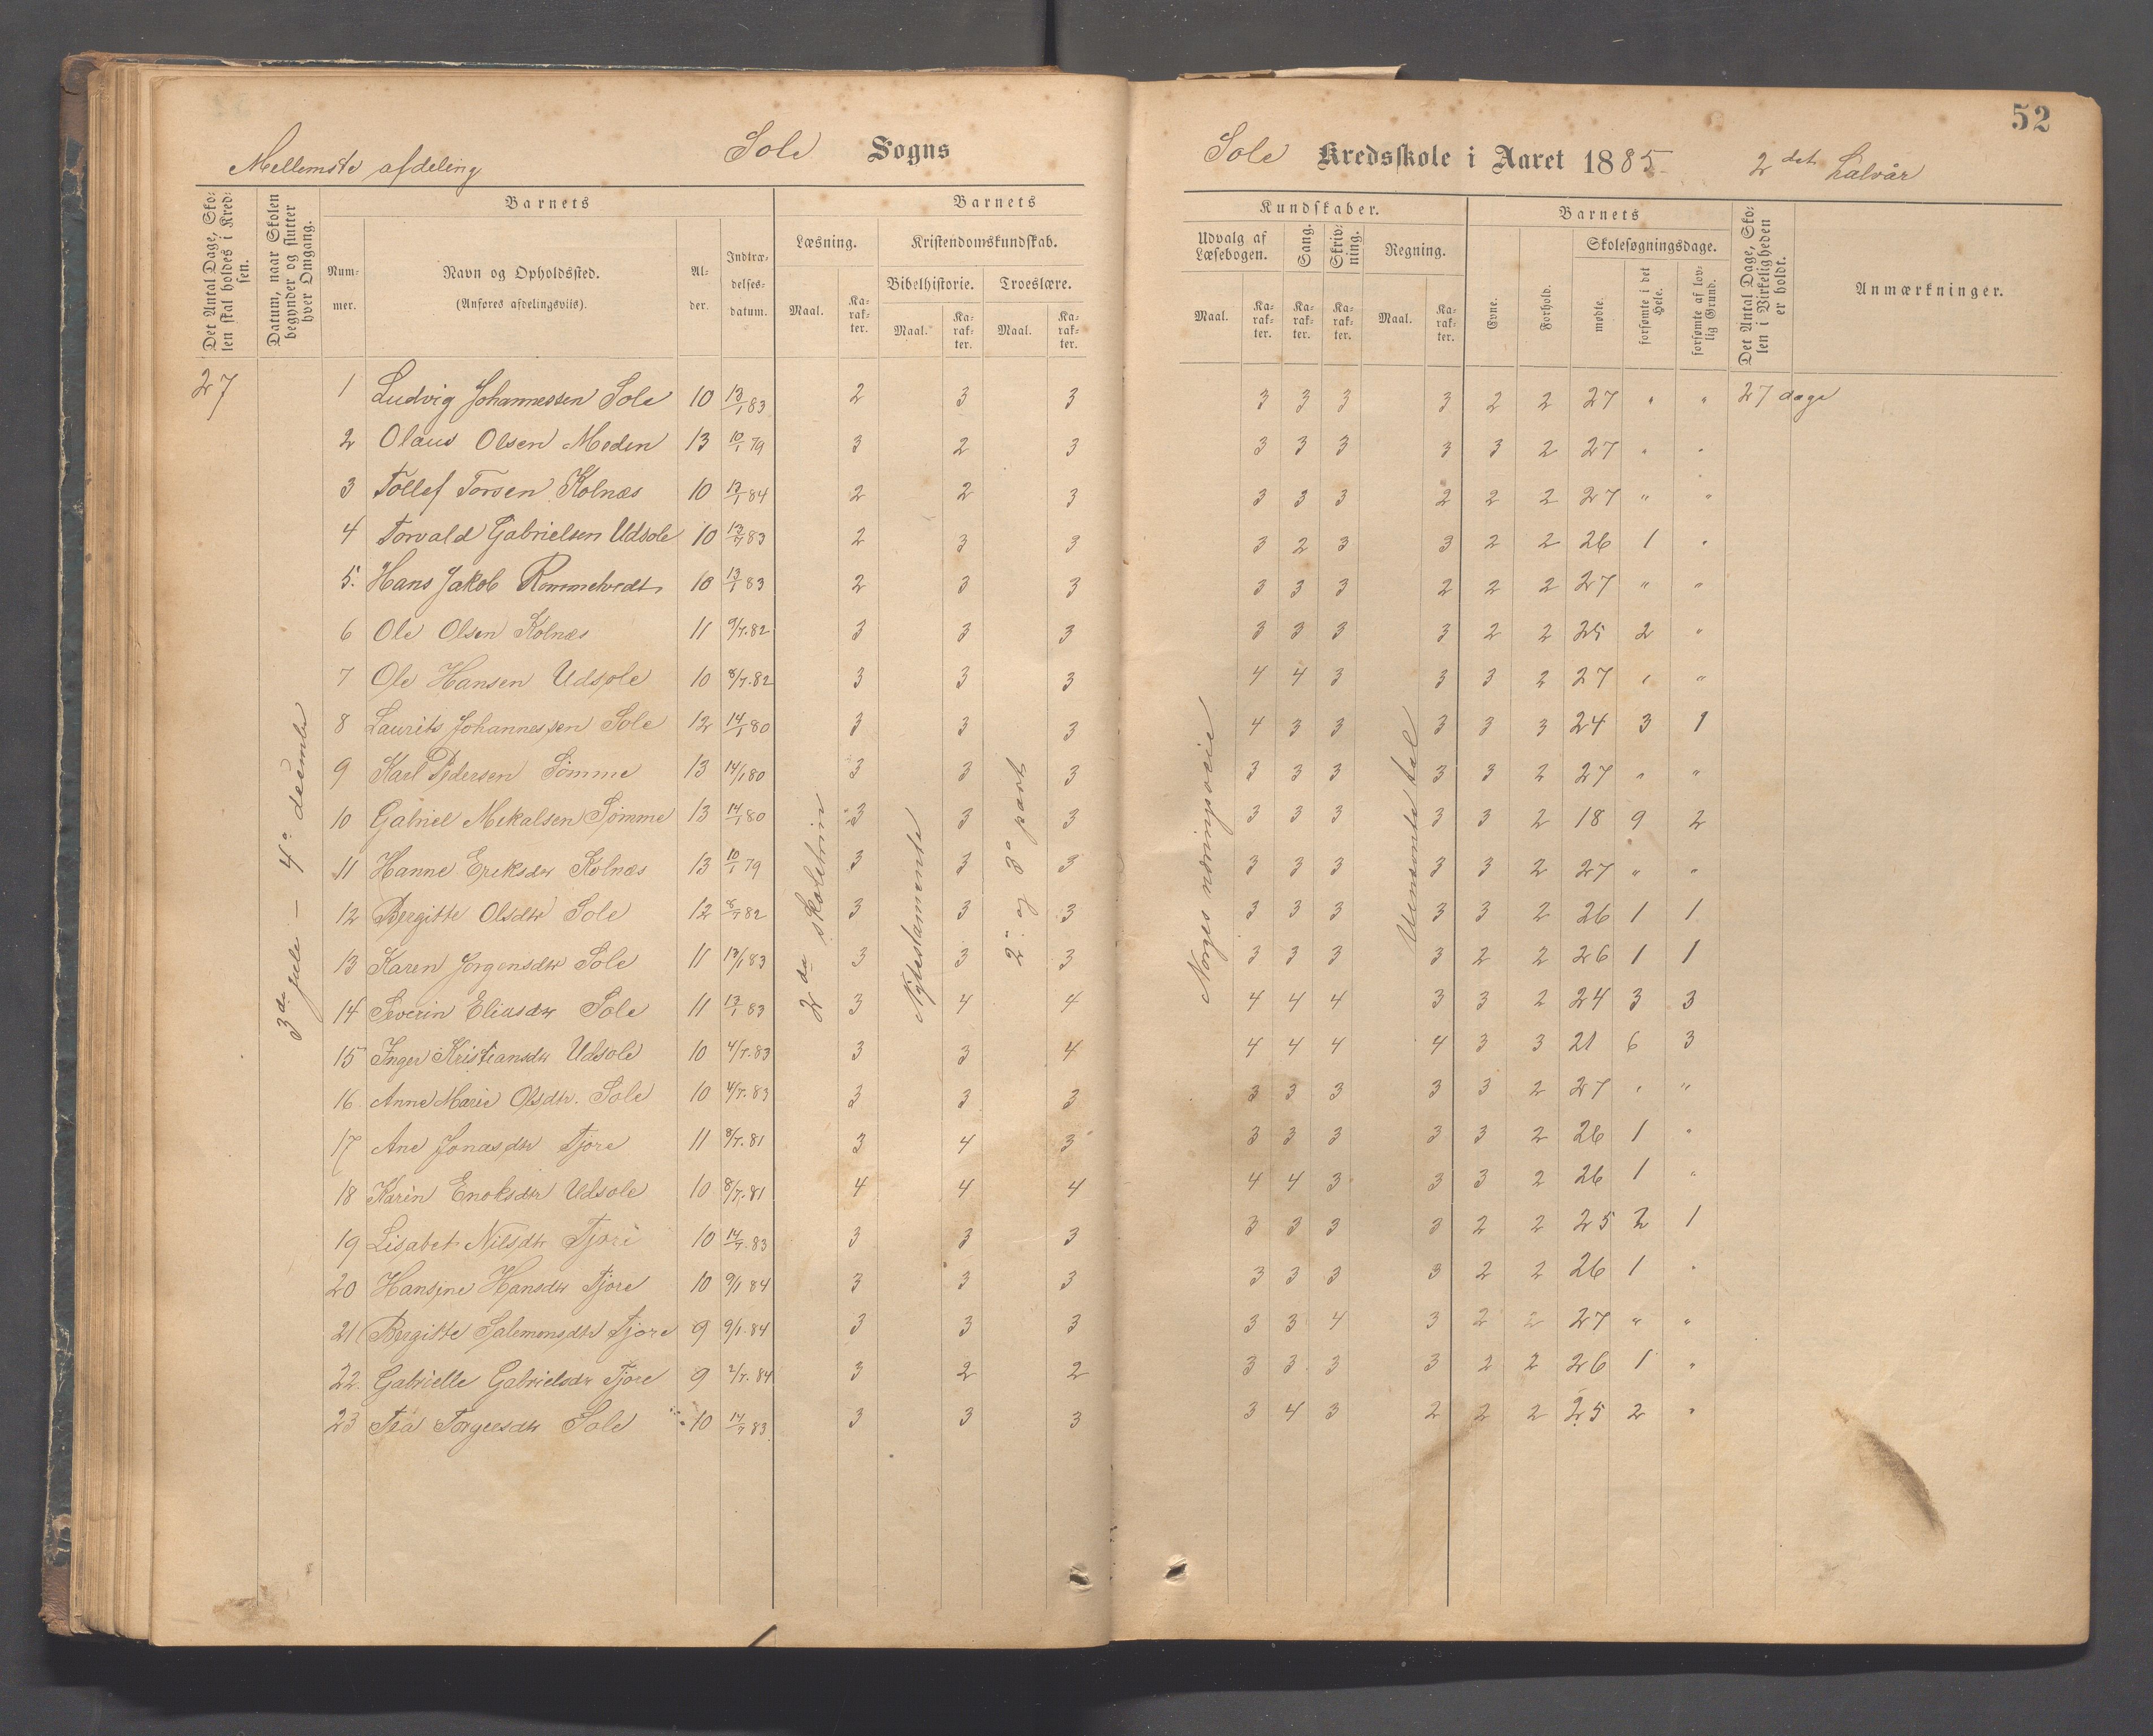 52
Mellemste afdeling Sole Sogns Sole Kredsskole i Aaret 1885. 2det halvår
Det Antal Dage, Skolen skal holdes i Kredsen.
Datum, naar Skolen begynder og slutter hver Omgang.
Barnets
Nummer.
Navn og Opholdssted.
(Anføres afdelingsviis).
Alder.
Indtrædelsesdatum.
Barnets Kundskaber.
Læsning. Kristendomskundskab. Udvalg af Læsebogen. Sang. Skrivning. Regning.
Bibelhistorie. Troeslære.
Maal. Karakter. Maal. Karakter. Maal. Karakter. Maal. Karakter. Karakter. Karakter. Maal. Karakter.
Barnets
Evne. Forhold. Skolesøgningsdage.
mødte. forsømte i det Hele. forsømte af lovlig Grund.
Det Antal Dage, Skolen i Virkeligheden er holdt.
Anmærkninger.
27 1 Ludvig Johannessen Sole 10 13/1 83 2 3 3 3 3 3 3 2 2 27 " " 27 dage
2 Olaus Olsen Meden 13 10/1 79 3 2 3 3 3 3 3 3 2 27 " "
3 Tollef Torsen Kolnæs 10 13/1 84 2 2 3 3 3 3 2 2 2 27 " "
4 Torvald Gabrielsen Udsole 10 13/7 83 2 3 3 3 2 3 3 2 2 26 1 "
5. Hans Jakob 10 13/1 83 2 3 3 3 3 3 2 2 2 27 " "
6 Ole Olsen Kolnæs 11 9/7.82 3 3 3 3 3 3 3 2 2 25 2 "
7 Ole Hansen Udsole 10 8/7.82 3 3 3 4 4 3 3 3 2 27 " "
8 Laurits Johannessen Sole 12 14/1 80 3 3 3 4 3 3 3 3 3 24 3 1
9 Karl Pedersen Sömme 13 14/1 80 3 3 3 3 3 3 3 3 2 27 " "
10 Gabriel Mekalsen Sömme 13 14/1 80 3 3 3 3 3 3 3 3 2 18 9 2
11 Hanne Eriksdtr Kolnæs 13 10/1 79 3 3 3 3 3 3 3 3 2 27 " "
12 Bergitte Olsdtr Sole 12 8/7 82 3 3 3 3 3 3 3 3 2 26 1 1
13 Karen Jorgensdtr Sole 11 13/1 83 3 3 3 3 3 3 3 2 2 26 1 1
14 Severin Eliasdtr Sole 11 13/1 83 3 4 4 4 4 4 3 3 2 24 3 3
15 Inger Kristiansdtr Udsole 10 4/7.83 3 3 4 4 4 4 4 3 3 21 6 3
16 Anne Marie Olsdtr. Sole 10 4/7.83 3 3 3 3 3 3 3 3 2 27 " "
17 Ane Jonasdtr Tjore 11 8/7.81 3 4 3 3 3 3 3 3 2 26 1 "
18 Karin Enoksdtr Udsole 10 8/7.81 4 4 4 4 4 3 3 3 2 26 1 "
19 Lisabet Nilsdtr Tjore 10 14/7.83 3 3 3 3 3 3 3 2 2 25 2 1
20 Hansine Hansdtr Tjore 10 9/1 84 3 3 3 3 3 3 3 2 2 26 1 "
21 Bergitte Salemonsdtr Tjore 9 9/1.84 3 3 3 3 3 4 3 2 2 27 " "
22. Gabrielle Gabrielsdtr Tjore 9 2/7.84 3 2 2 3 3 3 3 2 2 26 1 "
23 Tea Torgersdtr Sole 10 14/7 83 3 3 3 3 4 3 2 2 2 25 2 "
3die Jule – 4de decembr
2den skoletrin
Nytestamente
2. og 3. part
Norges næringsveie
tal